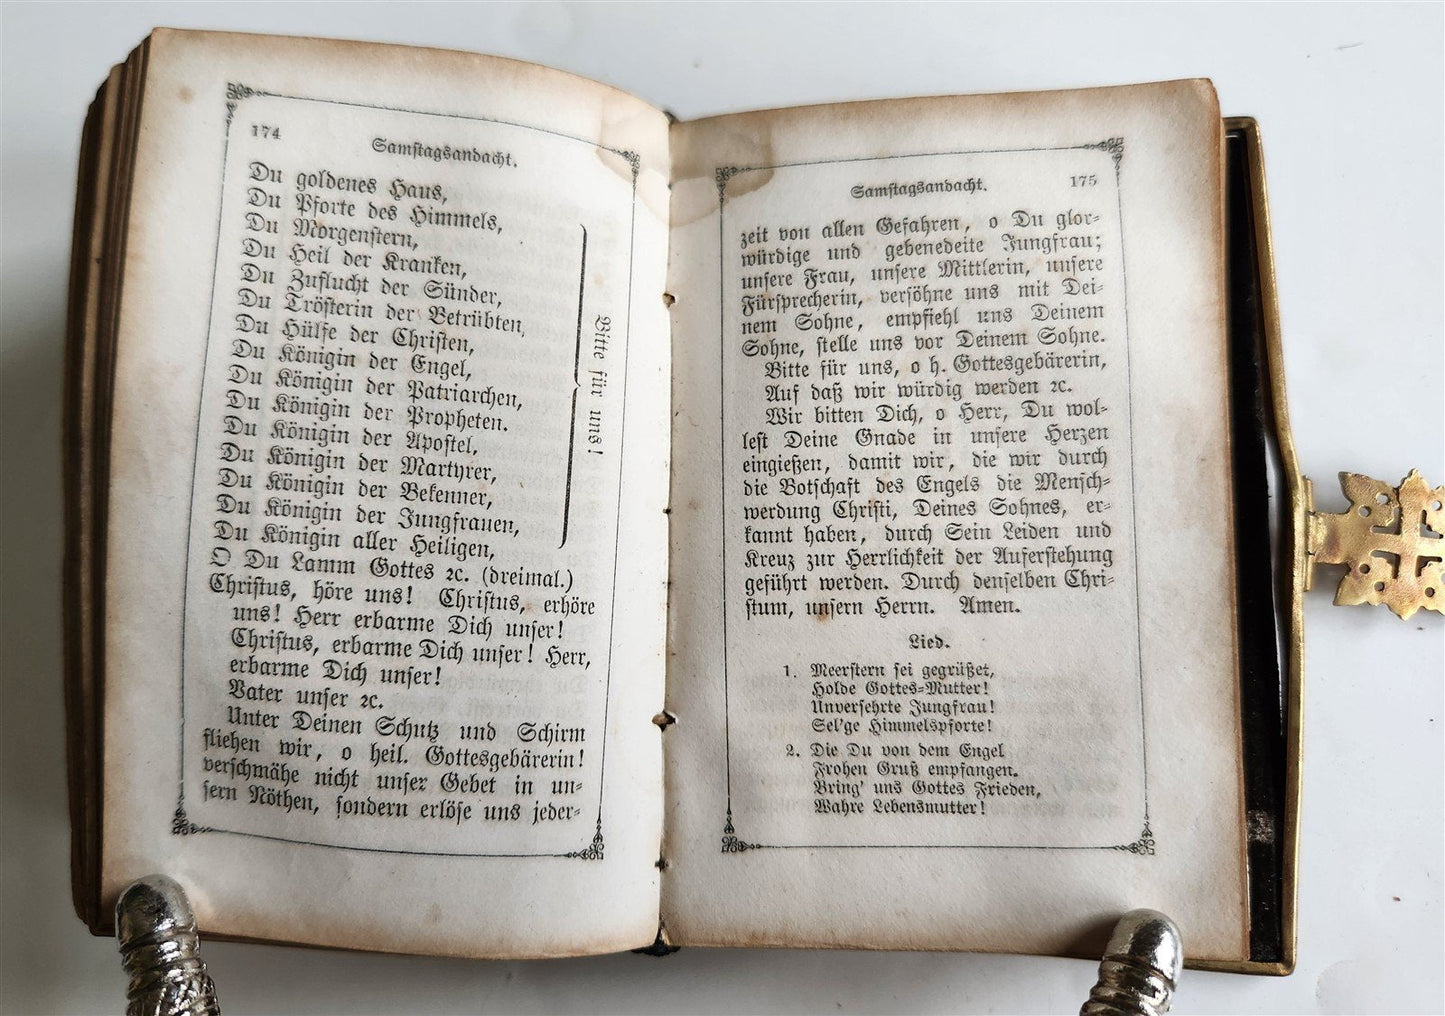 174
Samstagsandacht.
Du goldenes Haus,
Du Pforte des Himmels,
Du Morgenstern,
Du Heil der Kranken,
Du Zuflucht der Sünder,
Du Trösterin der Betrübten,
Du Hülfe der Christen,
Du Königin der Engel,
Du Königin der Patriarchen,
Du Königin der Propheten.
Du Königin der Apostel,
Du Königin der Martyrer,
Du Königin der Bekenner,
Du Königin der Jungfrauen,
Du Königin aller Heiligen,
Bitte für uns!
O Du Lamm Gottes ꝛc. (dreimal.)
Christus, höre uns! Christus, erhöre
uns! Herr erbarme Dich unser!
Christus, erbarme Dich unser! Herr,
erbarme Dich unser!
Vater unser ꝛc.
Unter Deinen Schutz und Schirm
fliehen wir, o heil. Gottesgebärerin!
verschmähe nicht unser Gebet in un-
sern Nöthen, sondern erlöse uns jeder-
Samstagsandacht.
175
zeit von allen Gefahren, o Du glor-
würdige und gebenedeite Jungfrau;
unsere Frau, unsere Mittlerin, unsere
Fürsprecherin, versöhne uns mit Dei-
nem Sohne, empfiehl uns Deinem
Sohne, stelle uns vor Deinem Sohne.
Bitte für uns, o h. Gottesgebärerin,
Auf daß wir würdig werden ꝛc.
Wir bitten Dich, o Herr, Du wol-
lest Deine Gnade in unsere Herzen
eingießen, damit wir, die wir durch
die Botschaft des Engels die Mensch-
werdung Christi, Deines Sohnes, er-
kannt haben, durch Sein Leiden und
Kreuz zur Herrlichkeit der Auferstehung
geführt werden. Durch denselben Chri-
stum, unsern Herrn. Amen.
Lied.
1. Meerstern sei gegrüßet,
Holde Gottes-Mutter!
Unversehrte Jungfrau!
Sel'ge Himmelspforte!
2. Die Du von dem Engel
Frohen Gruß empfangen.
Bring' uns Gottes Frieden,
Wahre Lebensmutter!